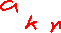 a k n